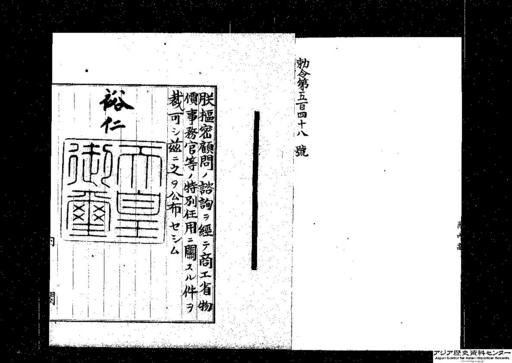 勅令第五百四十八號
朕樞密顧問ノ諮詢ヲ經テ商工省物
價事務官等ノ特別任用ニ關スル件ヲ
裁可シ茲ニ之ヲ公布セシム
裕仁
天皇御璽
内閣
アジア歴史資料センター
Japan Center for Asian Historical Records